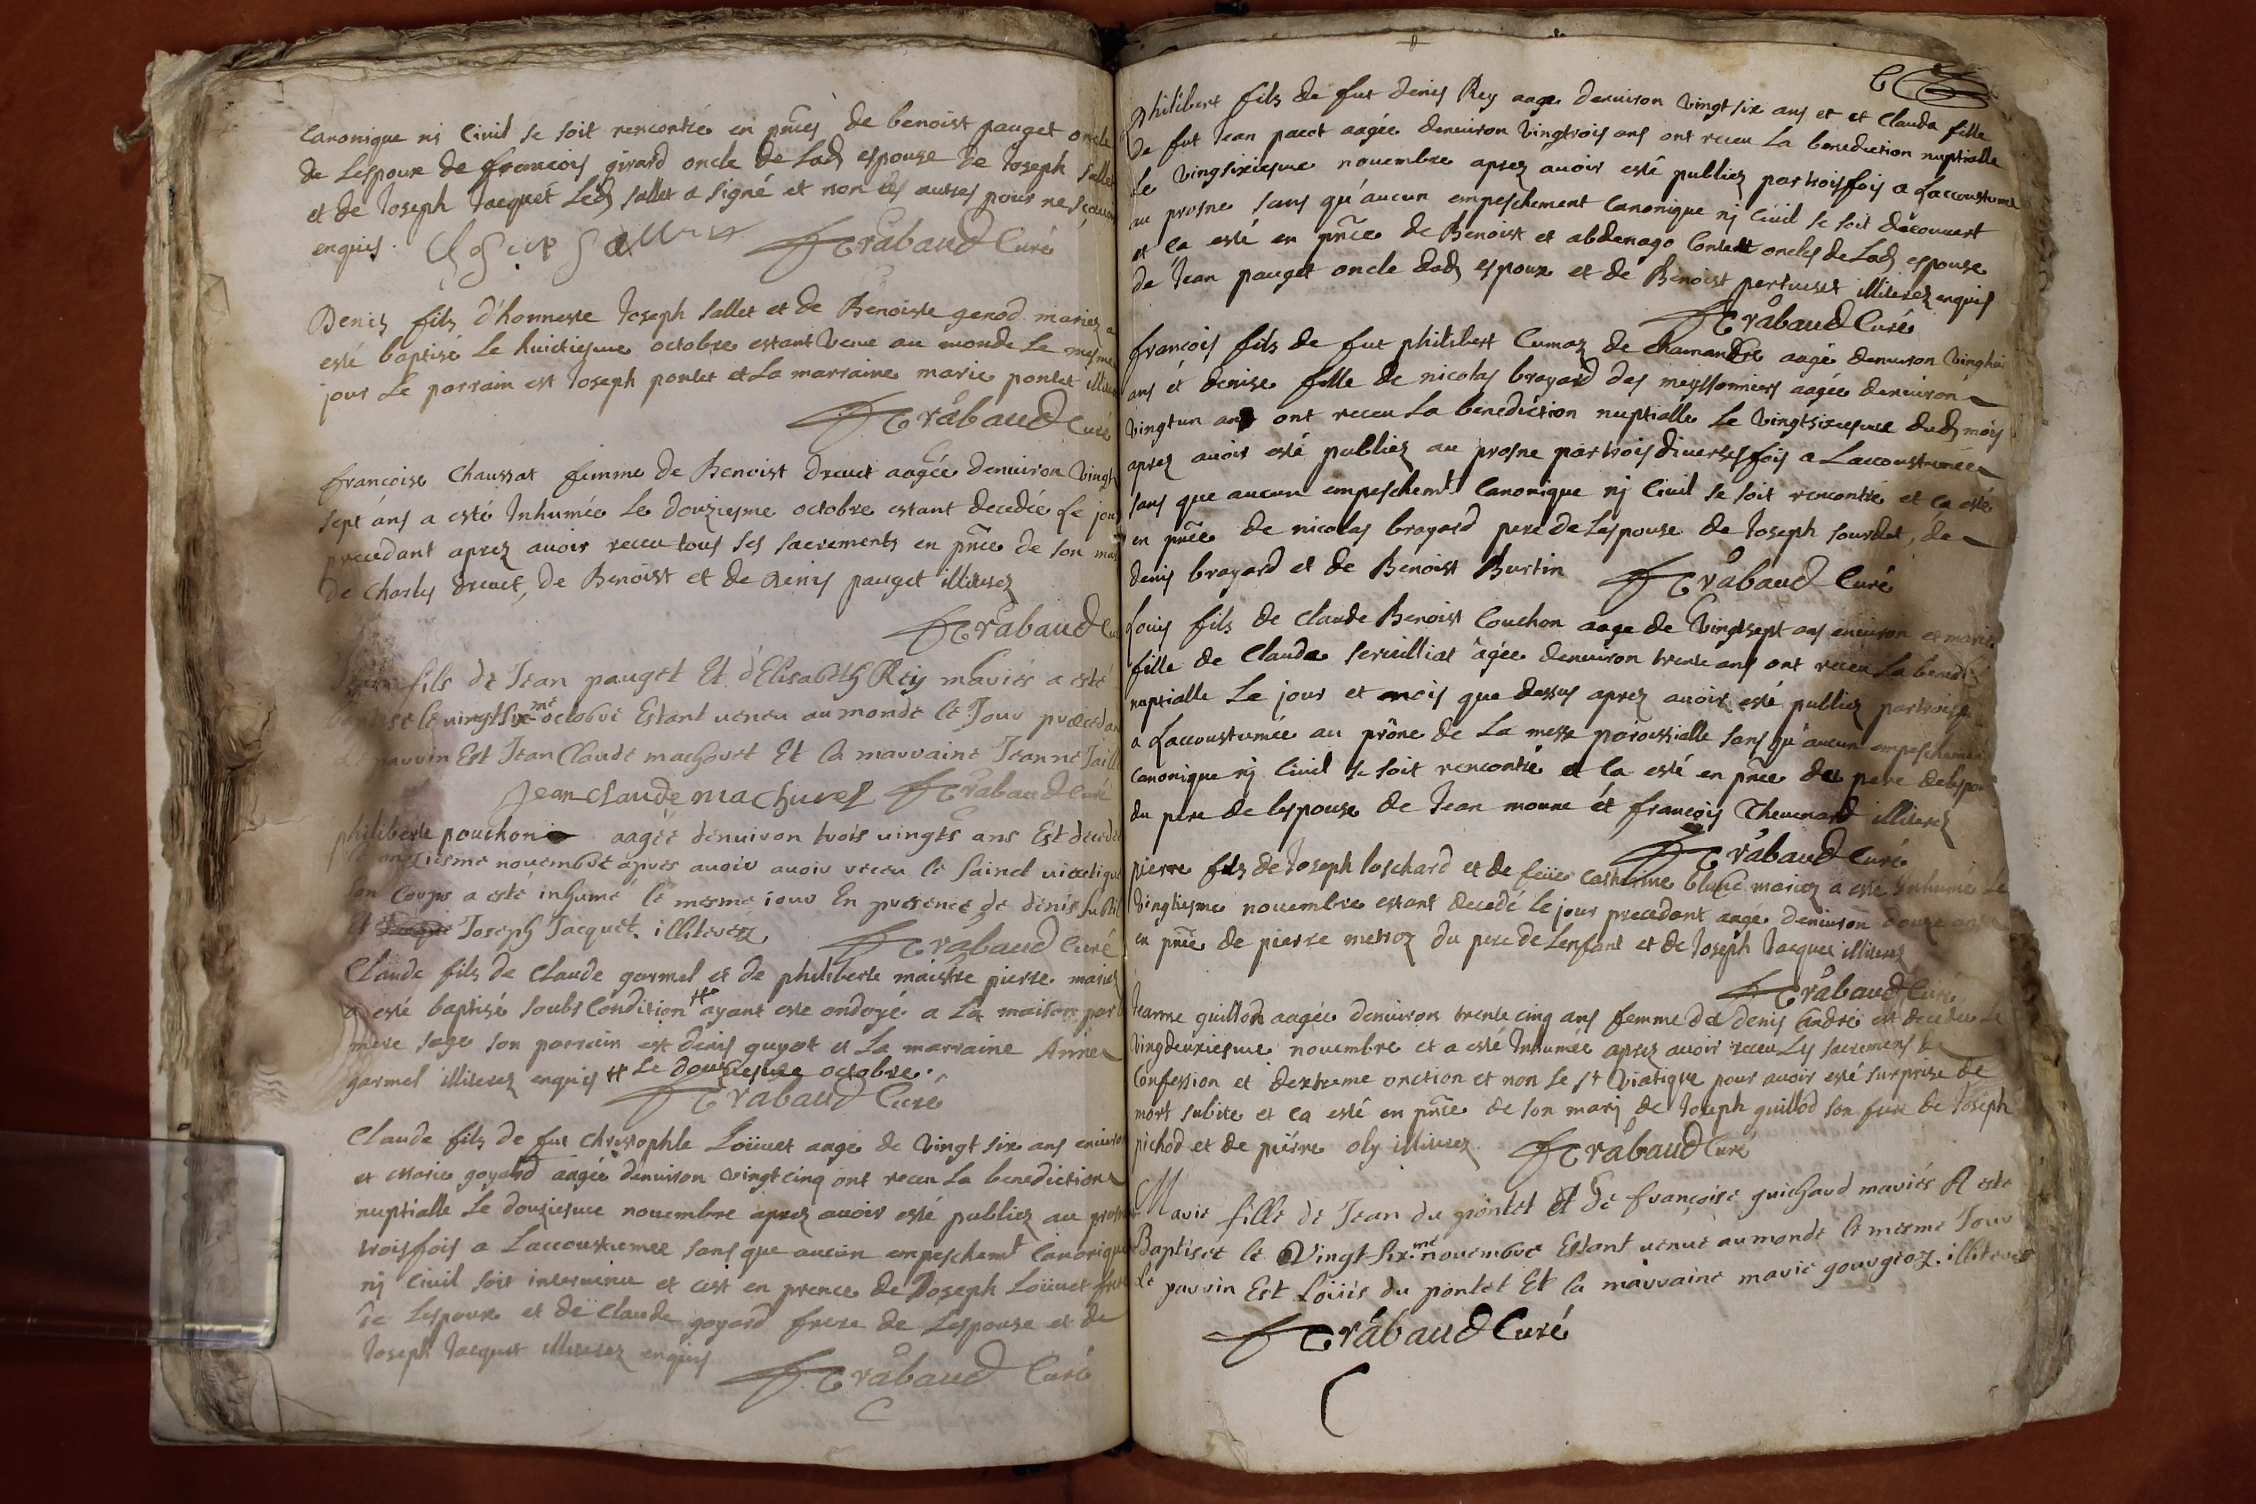 Canonique ni Civil se soit rencontré en pnces de benoist pauget oncle
de Lespoux de francois girard oncle de Lad espouse de Joseph sallet
et de Joseph Jacquet Led sallet a signé et non les autres pour ne scavoir
enquis. Trabaud Curé
Denis fils d'honneste Joseph sallet et de Benoiste genod mariez a
esté baptisé Le huictiesme octobre estant venu au monde Le mesme
jour Le parrain est Joseph pontet et La marraine marie pontet
Trabaud Curé
francoise Chaussat femme de Benoist drevet aagée denviron vingt
sept ans a esté Inhumée Le douziesme octobre estant decedée Le jour
precedant aprez avoir receu tous ses sacrements en pnce de son
de Charles drevet, de Benoist et de Denis pauget illiterez
Trabaud
fils de Jean pauget Et d'Elisabeth Rey mariés a esté
le vingt six me octobre Estant venu au monde le Jour precedan
parrin Est Jean Claude machuret Et la marraine Jeanne
Jean claude machuret Trabaud Curé
philiberte pouchon aagée denviron trois vingts ans Est
onziesme novembre apres avoir avoir receu le Sainct viatique
son Corps a esté inhumé le mesme iour En presence de denis
Et Joseph Jacquet illiterez Trabaud Curé
Claude fils de Claude gormel et de philiberte maistre pierre mariez
a esté baptisé soubs Condition # ayant esté ondoyé a La maison par
mere sage son parrain est Denis guyot et La marraine Anne
gormel illiterez enquis # Le douziesme octobre.
Trabaud Curé
Claude fils de fut christophle Loüvet aagé de vingt six ans environ
et Marie goyard aagée denviron vingt cinq ont receu La benediction
nuptialle Le douziesme novembre aprez avoir esté publiez au prosne
trois fois a Laccoustumee sans que aucun empeschemt Canonique
ni Civil soit intervenu et cest en prence de Joseph Loüvet frere
de Lespoux et de Claude goyard frere de Lespouse et de
Joseph Jacquet illiterez enquis Trabaud Curé
Philibert fils de fut denis Rey aage denviron vingt six ans et et Clauda fille
de fut Jean pacot aagée denviron vingtrois ans ont receu La benediction nuptialle
Le vingsixiesme novembre aprez avoir esté publiez par trois fois a Laccoustumee
au prosne sans qu'aucun empeschement Canonique ni Civil se soit decouvert
et ca esté en pnce de Benoist et abdenago Contet oncles de Lad espouse
de Jean pauget oncle dud espoux et de Benoist pertuiset illiterez enquis
Trabaud Curé
francois fils de fut philibert Cumaz de Chamandre aagé denviron
ans et denise fille de nicolas brayard des meyssonniers aagée denviron
vingtun ans ont receu La benediction nuptialle Le vingtsixiesme dud mois
aprez avoir esté publiez au prosne par trois diverses fois a Laccoustumée
sans que aucun empeschemt Canonique ni Civil se soit rencontré et ca esté
en pnce de nicolas brayard pere de Lespouse de Joseph sourdet, de
denis brayard et de Benoist Burtin Trabaud Curé
Louis fils de Claude Benoist Couchon aage de vingtsept ans environ et marie
fille de Claude servilliat âgée denviron trente ans ont receu La
nuptialle Le jour et mois que dessus aprez avoir esté publiez par trois
a Laccoustumée au prône de La messe paroissialle sans qu'aucun empeschement
Canonique ni Civil se soit rencontré et ca esté en pnce du pere de
du pere de lespouse de Jean monne et francois Thevenard illiterez
Trabaud Curé
pierre fils de Joseph loschard et de feüe Catherine blanc mariez a esté Inhumé Le
vingtiesme novembre estant decedé Le jour precedant aagé denviron douze ans
en pnce de pierre metroz du pere de Lenfant et de Joseph Jacquet illiterez
Trabaud Curé
Jeanne guillod aagée denviron trente cinq ans femme de denis andré est decedée Le
vingdeuxiesme novembre et a esté Inhumée aprez avoir receu Les sacremens de
Confession et dextreme onction et non Le st viatique pour avoir esté surprise de
mort subite et ca esté en pnce de son mari de Joseph guillod son frere de Joseph
pichod et de pierre oly illiterez Trabaud Curé
Marie fille de Jean du pontet Et de francoise guichard mariés A esté
Baptisée le Vingt six me novembre Estant venue au monde le mesme Jour
Le parrin Est Loüis du pontet Et la marraine marie gourgeoz illiterez
Trabaud Curé